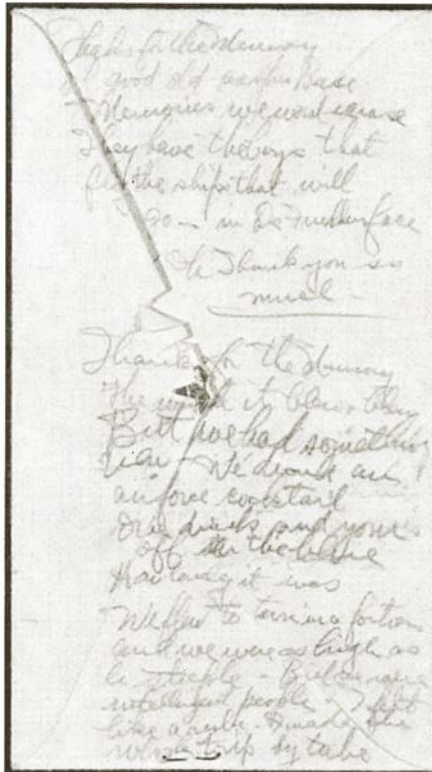 Thanks for the Memory
good old Base
Memories we won't erase
They have the boys that
fly the ships that will
go — in Der Fuehrer's face
Oh Thank you so
much —
Thanks for the Memory
The wind it blew
But we had something
new — We drank an
airforce cocktail
One drink and you're
off in the blue
How lovely it was
We flew to
and we were as high as
a steeple — But
intelligent people — I felt
like a I made the
whole trip by tube